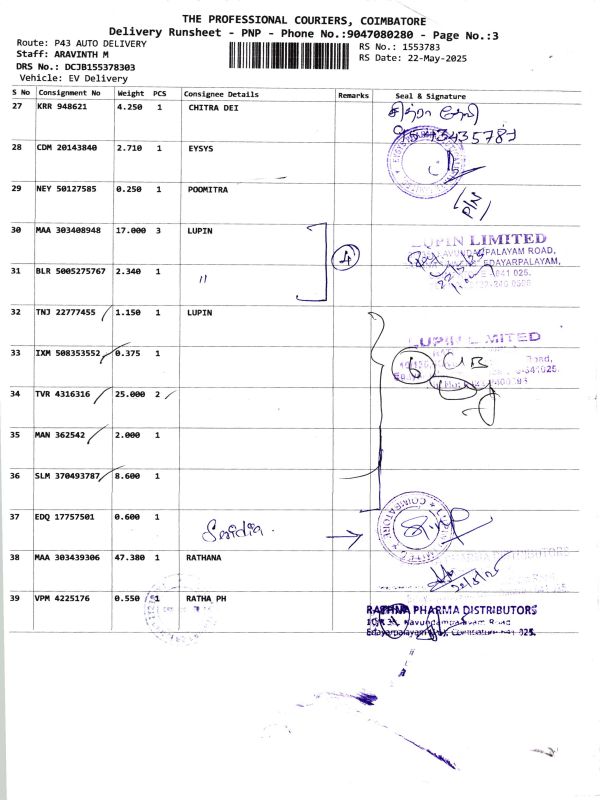 THE PROFESSIONAL COURIERS, COIMBATORE
Delivery Runsheet - PNP - Phone No.:9047080280 - Page No.:3
Route: P43 AUTO DELIVERY
Staff: ARAVINTH M
DRS No.: DCJB155378303
Vehicle: EV Delivery
RS No.: 1553783
RS Date: 22-May-2025
S No Consignment No Weight PCS Consignee Details Remarks Seal & Signature
27 KRR 948621 4.250 1 CHITRA DEI
28 CDM 20143840 2.710 1 EYSYS
29 NEY 50127585 0.250 1 POOMITRA
30 MAA 303408948 17.000 3 LUPIN
④ LUPIN LIMITED
31 BLR 5005275767 2.340 1 "
22/5/25
32 TNJ 22777455 1.150 1 LUPIN
LUPIN LIMITED
33 IXM 508353552 0.375 1
34 TVR 4316316 25.000 2
35 MAN 362542 2.000 1
36 SLM 370493787 8.600 1
37 EDQ 17757501 0.600 1
COIMBATORE
38 MAA 303439306 47.380 1 RATHANA
22/5/25
39 VPM 4225176 0.550 1 RATHA PH
RATHNA PHARMA DISTRIBUTORS